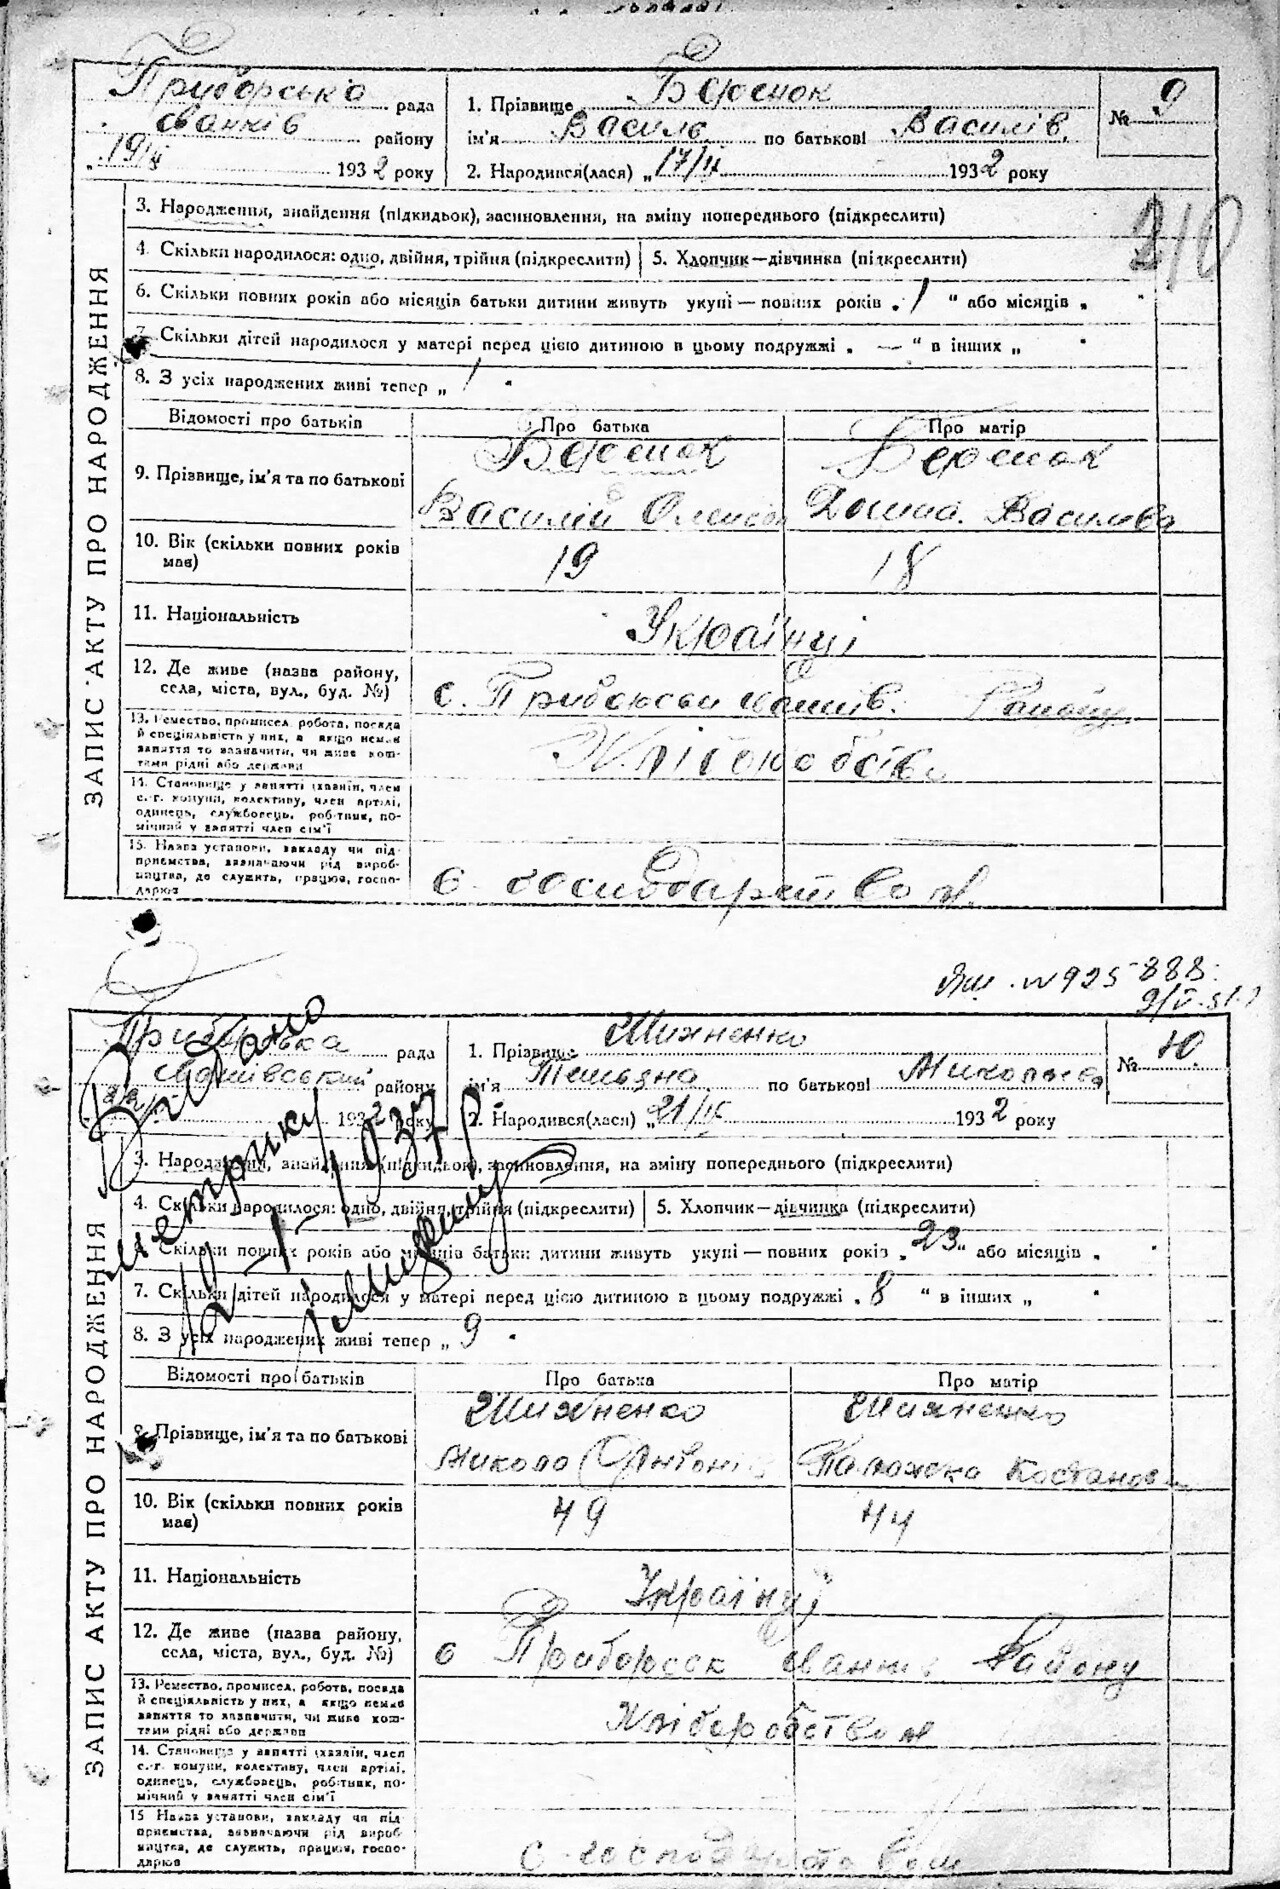 Приборська рада
Іванків району
"19/IV 1932 року
1. Прізвище
ім'я Василь по батькові Василів.
2. Народився(лася) „17/IV 1932 року
№ 9
210
ЗАПИС АКТУ ПРО НАРОДЖЕННЯ
3. Народження, знайдення (підкидьок), засиновлення, на зміну попереднього (підкреслити)
4. Скільки народилося: одно, двійня, трійня (підкреслити) 5. Хлопчик—дівчинка (підкреслити)
6. Скільки повних років або місяців батьки дитини живуть укупі — повних років „ 1 “ або місяців „ “
7. Скільки дітей народилося у матері перед цією дитиною в цьому подружжі „ — “ в інших „ “
8. З усіх народжених живі тепер „ 1 “
Відомості про батьків Про батька Про матір
9. Прізвище, ім'я та по батькові
Василій Василівна
10. Вік (скільки повних років має) 19 18
11. Національність Українці
12. Де живе (назва району, села, міста, вул., буд. №) с. Приборськ Іванків. Району
13. Ремество, промисел, робота, посада й спеціяльність у них, а якщо немає заняття то зазначити, чи живе коштами рідні або держави
Хліборобство
14. Становище у занятті (хазяїн, член с.-г. комуни, колективу, член артілі, одинець, службовець, робітник, помічний у занятті член сім'ї
15. Назва установи, закладу чи підприємства, зазначаючи рід виробництва, де служить, працює, господарює
є господарством
№ 925888
Приборська рада
Іванківський району
1932 року
1. Прізвище Михненко
ім'я Тетьяна по батькові Миколаєва
2. Народився(лася) „21/IV 1932 року
№ 10
Видано
метрику
12-I-1937 р.
ЗАПИС АКТУ ПРО НАРОДЖЕННЯ
3. Народження, знайдення (підкидьок), засиновлення, на зміну попереднього (підкреслити)
4. Скільки народилося: одно, двійня, трійня (підкреслити) 5. Хлопчик—дівчинка (підкреслити)
6. Скільки повних років або місяців батьки дитини живуть укупі — повних років „ 23 “ або місяців „ “
7. Скільки дітей народилося у матері перед цією дитиною в цьому подружжі „ 8 “ в інших „ “
8. З усіх народжених живі тепер „ 9 “
Відомості про батьків Про батька Про матір
9. Прізвище, ім'я та по батькові Михненко Михненко
Микола Антонів Палажка
10. Вік (скільки повних років має) 49 44
11. Національність Українці
12. Де живе (назва району, села, міста, вул., буд. №) с Приборськ Іванків Району
13. Ремество, промисел, робота, посада й спеціяльність у них, а якщо немає заняття то зазначити, чи живе коштами рідні або держави
Хліборобством
14. Становище у занятті (хазяїн, член с.-г. комуни, колективу, член артілі, одинець, службовець, робітник, помічний у занятті член сім'ї
15 Назва установи, закладу чи підприємства, зазначаючи рід виробництва, де служить, працює, господарює
є господарством